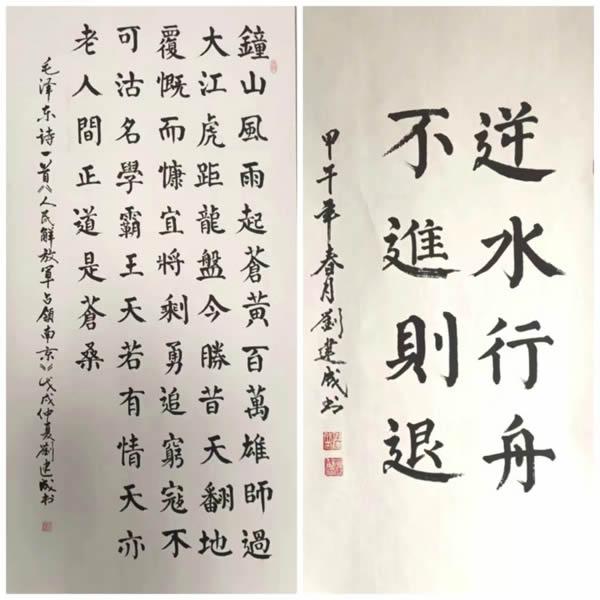 鐘山風雨起蒼黃百萬雄師過
大江虎距龍盤今勝昔天翻地
覆慨而慷宜將剩勇追窮寇不
可沽名學霸王天若有情天亦
老人間正道是蒼桑
毛泽东诗一首《人民解放軍占领南京》戊戌仲夏劉建成书
逆水行舟
不進則退
甲午年春月劉建成书